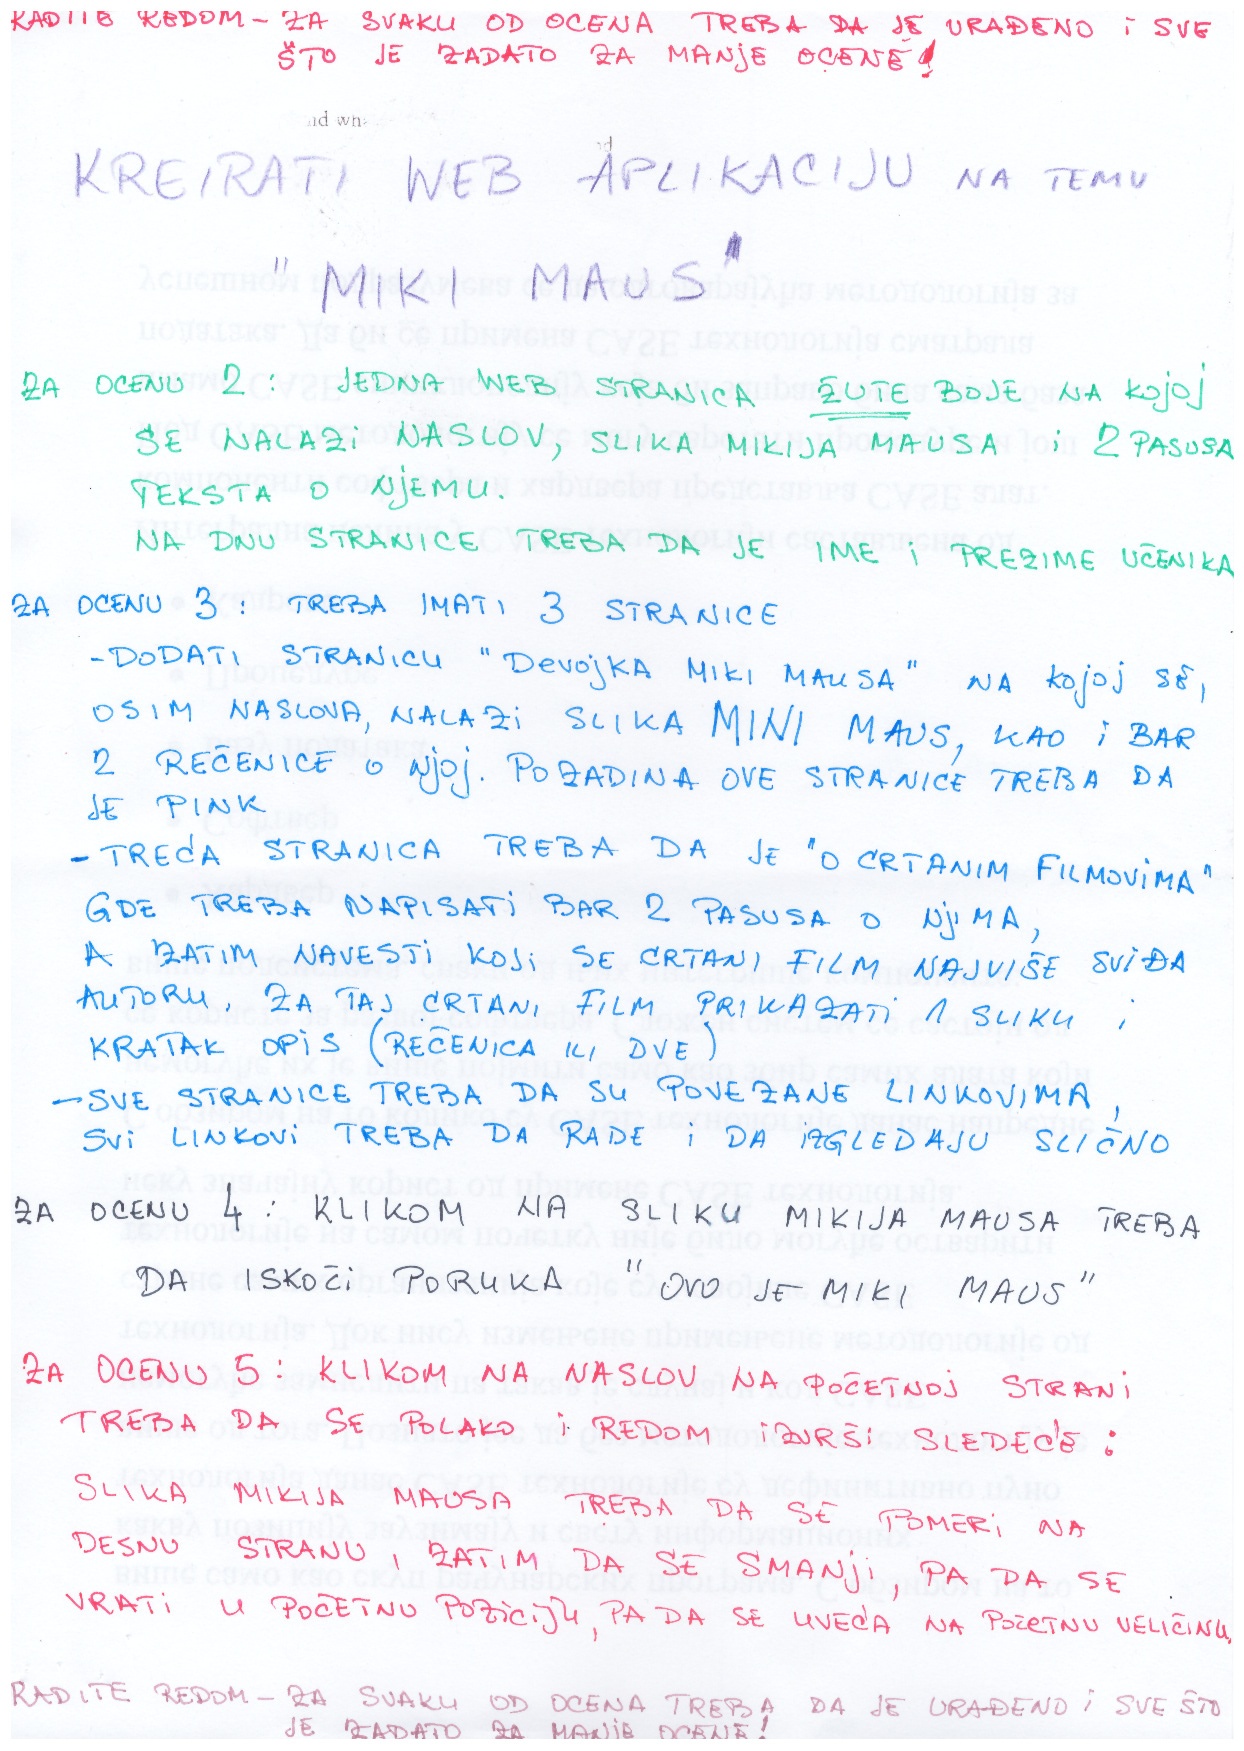 RADITE REDOM - ZA SVAKU OD OCENA TREBA DA JE URAĐENO i SVE
ŠTO JE ZADATO ZA MANJE OCENE!
KREIRATI WEB APLIKACIJU NA TEMU
"MIKI MAUS"
ZA OCENU 2: JEDNA WEB STRANICA ŽUTE BOJE NA KOJOJ
SE NALAZI NASLOV, SLIKA MIKIJA MAUSA i 2 PASUSA
TEKSTA O NJEMU.
NA DNU STRANICE TREBA DA JE IME i PREZIME UČENIKA
ZA OCENU 3: TREBA IMATI 3 STRANICE
- DODATI STRANICU "DEVOJKA MIKI MAUSA" NA KOJOJ SE,
OSIM NASLOVA, NALAZI SLIKA MINI MAUS, KAO i BAR
2 REČENICE O NJOJ. POZADINA OVE STRANICE TREBA DA
JE PINK
- TREĆA STRANICA TREBA DA JE "O CRTANIM FILMOVIMA"
GDE TREBA NAPISATI BAR 2 PASUSA O NJIMA,
A ZATIM NAVESTI KOJI SE CRTANI FILM NAJVIŠE SVIĐA
AUTORU. ZA TAJ CRTANI FILM PRIKAZATI 1 SLIKU i
KRATAK OPIS (REČENICA ILI DVE)
- SVE STRANICE TREBA DA SU POVEZANE LINKOVIMA,
SVI LINKOVI TREBA DA RADE i DA IZGLEDAJU SLIČNO
ZA OCENU 4: KLIKOM NA SLIKU MIKIJA MAUSA TREBA
DA ISKOČI PORUKA "OVO JE MIKI MAUS"
ZA OCENU 5: KLIKOM NA NASLOV NA POČETNOJ STRANI
TREBA DA SE POLAKO i REDOM IZVRŠI SLEDEĆE:
SLIKA MIKIJA MAUSA TREBA DA SE POMERI NA
DESNU STRANU I ZATIM DA SE SMANJI, PA DA SE
VRATI U POČETNU POZICIJU, PA DA SE UVEĆA NA POČETNU VELIČINU.
RADITE REDOM - ZA SVAKU OD OCENA TREBA DA JE URAĐENO i SVE ŠTO
JE ZADATO ZA MANJE OCENE!